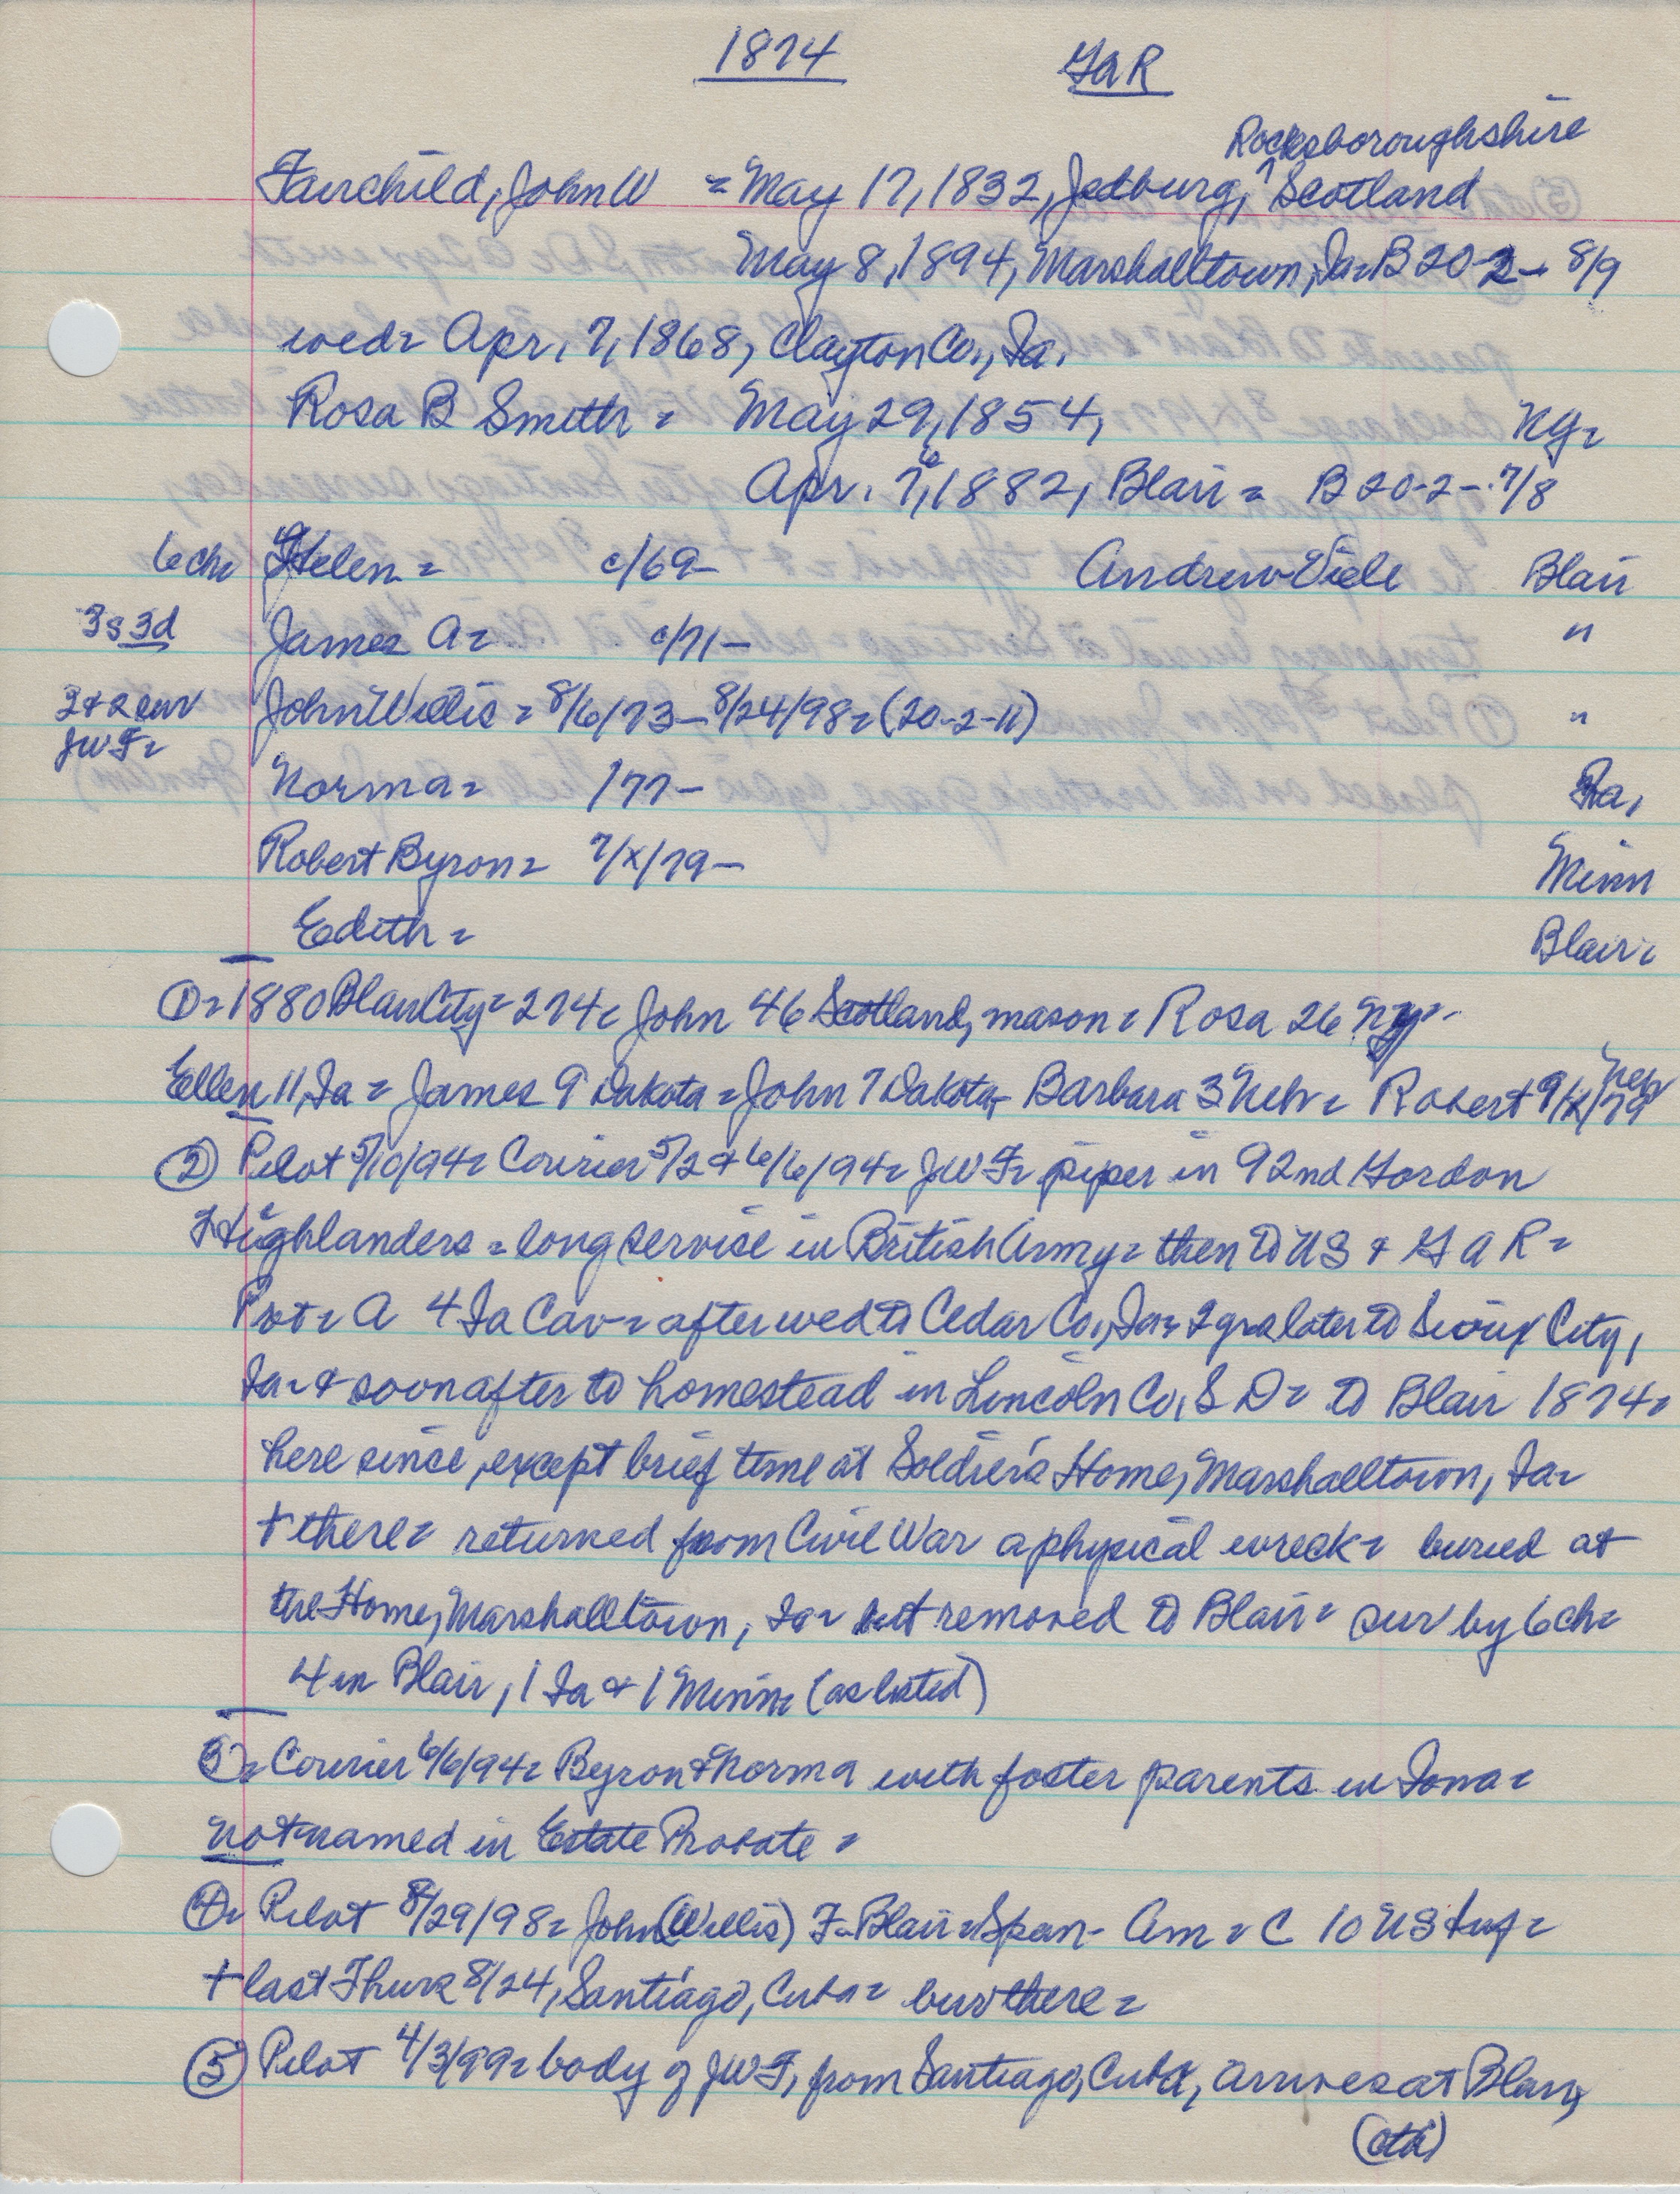 1874 GAR
Rocksboroughshire
Fairchild, John W = May 17, 1832, Jedburg, ^ Scotland
May 8, 1894, Marshalltown, Ia = B 20-2- 8/9
wed = Apr. 7, 1868, Clayton Co., Ia.
Rosa B Smith = May 29, 1854, NY =
Apr. 7, 1882, Blair = B 20-2- 7/8
6 ch = Helen = c/69- Andrew Viele Blair
3s 3d James A = c/71- "
John Willis = 8/6/73 - 8/24/98 = (20-2-11) "
JWF =
Norma = /77- Ia,
Robert Byron = 7/x/79- Minn
Edith = Blair =
① = 1880 Blair City = 274 = John 46 Scotland, mason = Rosa 26 NY =
Ellen 11, Ia = James 9 Dakota = John 7 Dakota = Barbara 3 Neb = Robert 9/x/79 Neb
② Pilot 5/10/94 = Courier 5/2 + 6/6/94 = JWF = piper in 92nd Gordon
Highlanders = long service in British Army = then to US + GAR =
Pvt = A 4 Ia Cav = after wed to Cedar Co., Ia = 2 yrs later to Sioux City,
Ia = + soon after to homestead in Lincoln Co, S D = to Blair 1874 =
here since, except brief time at Soldier's Home, Marshalltown, Ia =
+ there = returned from Civil War a physical wreck = buried at
the Home, Marshalltown, Ia = but removed to Blair = sur by 6 ch =
4 in Blair, 1 Ia + 1 Minn = (as listed)
③ = Courier 6/6/94 = Byron + Norma with foster parents in Iowa =
not named in Estate Probate =
④ = Pilot 8/29/98 = John (Willis) F = Blair = Span - Am = C 10 US Inf =
+ last Thurs 8/24, Santiago, Cuba = bur there =
⑤ Pilot 4/3/99 = body of JWF, from Santiago, Cuba, arrives at Blair,